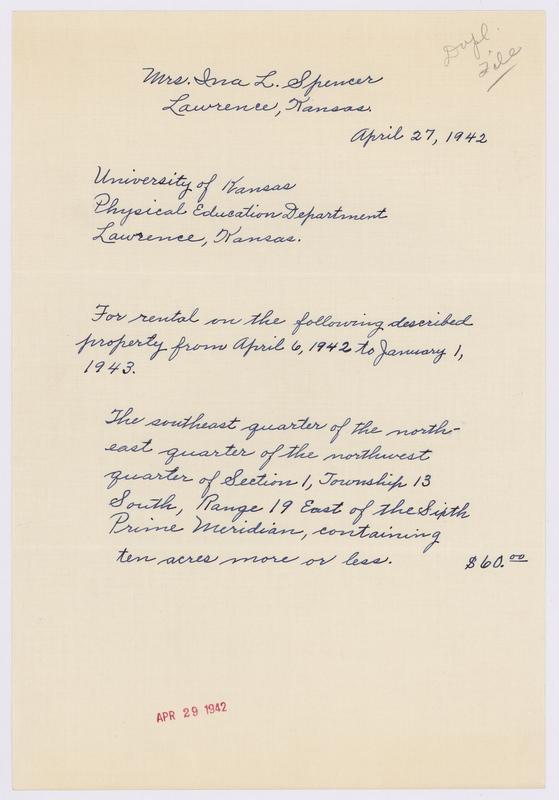 Dupl.
File
Mrs. Ina L. Spencer
Lawrence, Kansas.
April 27, 1942
University of Kansas
Physical Education Department
Lawrence, Kansas.
For rental on the following described
property from April 6, 1942 to January 1,
1943.
The southeast quarter of the north-
east quarter of the northwest
quarter of Section 1, Township 13
South, Range 19 East of the Sixth
Prime Meridian, containing
ten acres more or less. $60.00
APR 29 1942